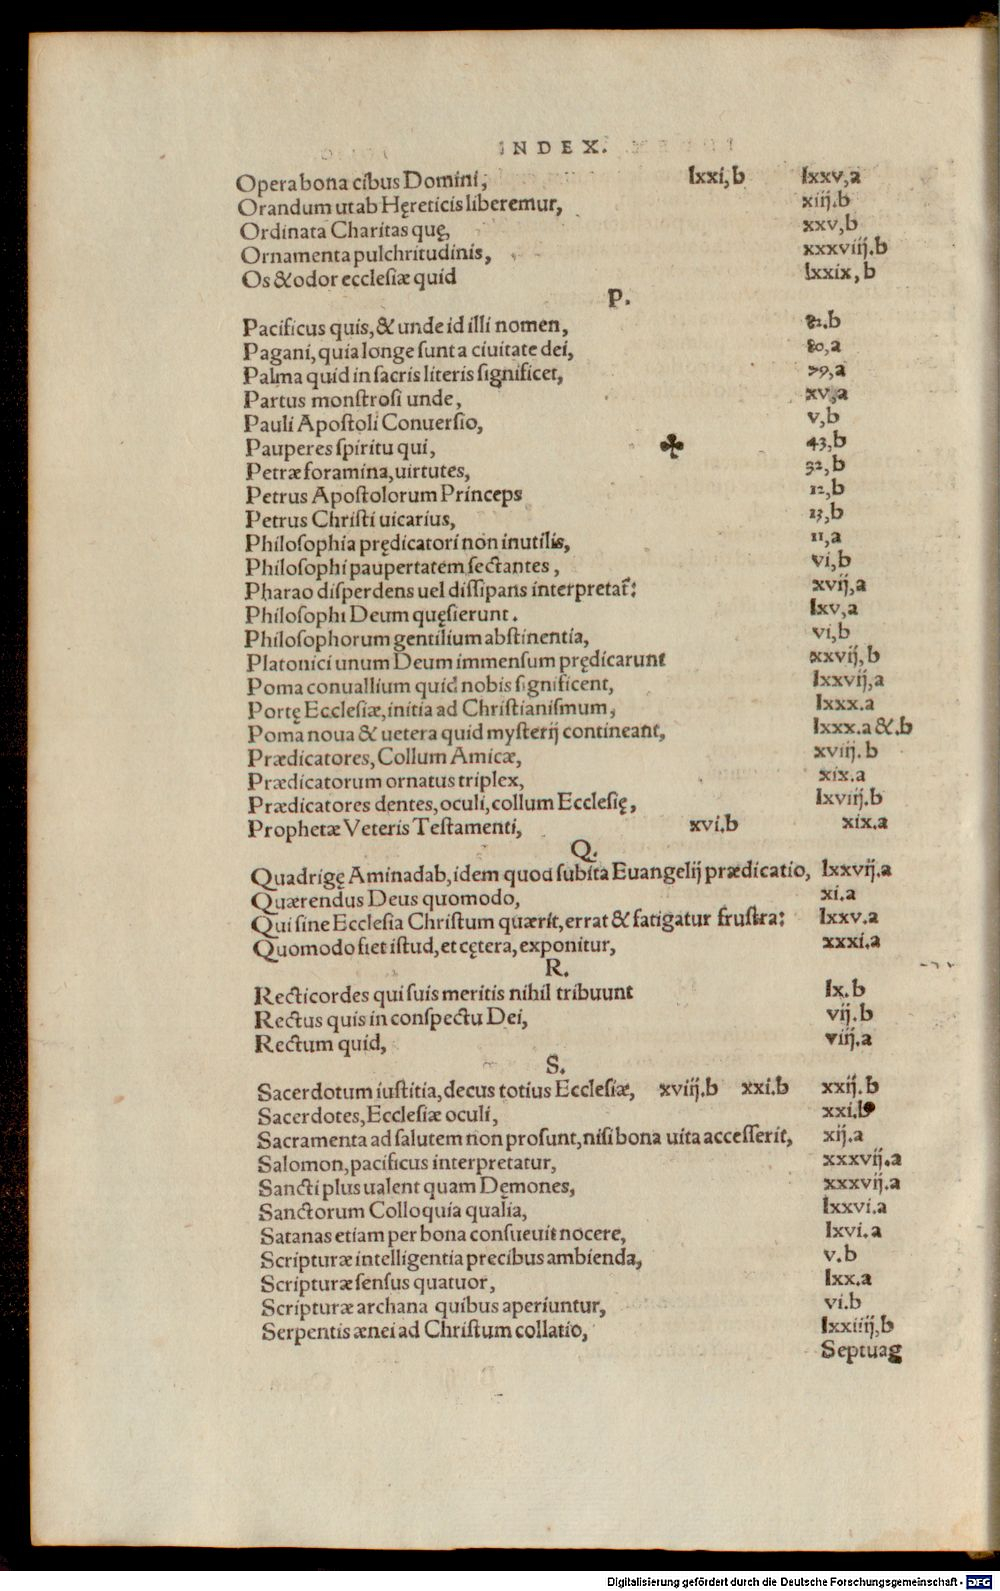 INDEX.
Opera bona cibus Domini, lxxi,b lxxv,a
Orandum ut ab Hęreticis liberemur, xiij.b
Ordinata Charitas quę, xxv,b
Ornamenta pulchritudinis, xxxviij.b
Os & odor ecclesiæ quid lxxix,b
P.
Pacificus quis, & unde id illi nomen, 82.b
Pagani, quia longe sunt a ciuitate dei, 80,a
Palma quid in sacris literis significet, 79,a
Partus monstrosi unde, xv,a
Pauli Apostoli Conuersio, v,b
Pauperes spiritu qui, ♣ 43,b
Petræ foramina, uirtutes, 32,b
Petrus Apostolorum Princeps 12,b
Petrus Christi uicarius, 13,b
Philosophia prędicatori non inutilis, 11,a
Philosophi paupertatem sectantes, vi,b
Pharao disperdens uel dissipans interpretat̃: xvij,a
Philosophi Deum quęsierunt. lxv,a
Philosophorum gentilium abstinentia, vi,b
Platonici unum Deum immensum prędicarunt xxvij,b
Poma conuallium quid nobis significent, lxxvij,a
Portę Ecclesiæ, initia ad Christianismum, lxxx.a
Poma noua & uetera quid mysterij contineant, lxxx.a &.b
Prædicatores, Collum Amicæ, xviij.b
Prædicatorum ornatus triplex, xix.a
Prædicatores dentes, oculi, collum Ecclesię, lxviij.b
Prophetæ Veteris Testamenti, xvi.b xix.a
Q.
Quadrigę Aminadab, idem quod subita Euangelij prædicatio, lxxvij.a
Quærendus Deus quomodo, xi.a
Qui sine Ecclesia Christum quærit, errat & fatigatur frustra: lxxv.a
Quomodo fiet istud, et cętera, exponitur, xxxi.a
R.
Recticordes qui suis meritis nihil tribuunt lx.b
Rectus quis in conspectu Dei, vij.b
Rectum quid, viij.a
S.
Sacerdotum iustitia, decus totius Ecclesiæ, xviij.b xxi.b xxij.b
Sacerdotes, Ecclesiæ oculi, xxi.b
Sacramenta ad salutem non prosunt, nisi bona uita accesserit, xij.a
Salomon, pacificus interpretatur, xxxvij.a
Sancti plus ualent quam Dęmones, xxxvij.a
Sanctorum Colloquia qualia, lxxvi.a
Satanas etiam per bona consueuit nocere, lxvi.a
Scripturæ intelligentia precibus ambienda, v.b
Scripturæ sensus quatuor, lxx.a
Scripturæ archana quibus aperiuntur, vi.b
Serpentis ænei ad Christum collatio, lxxiiij,b
Septuag
Digitalisierung gefördert durch die Deutsche Forschungsgemeinschaft - DFG